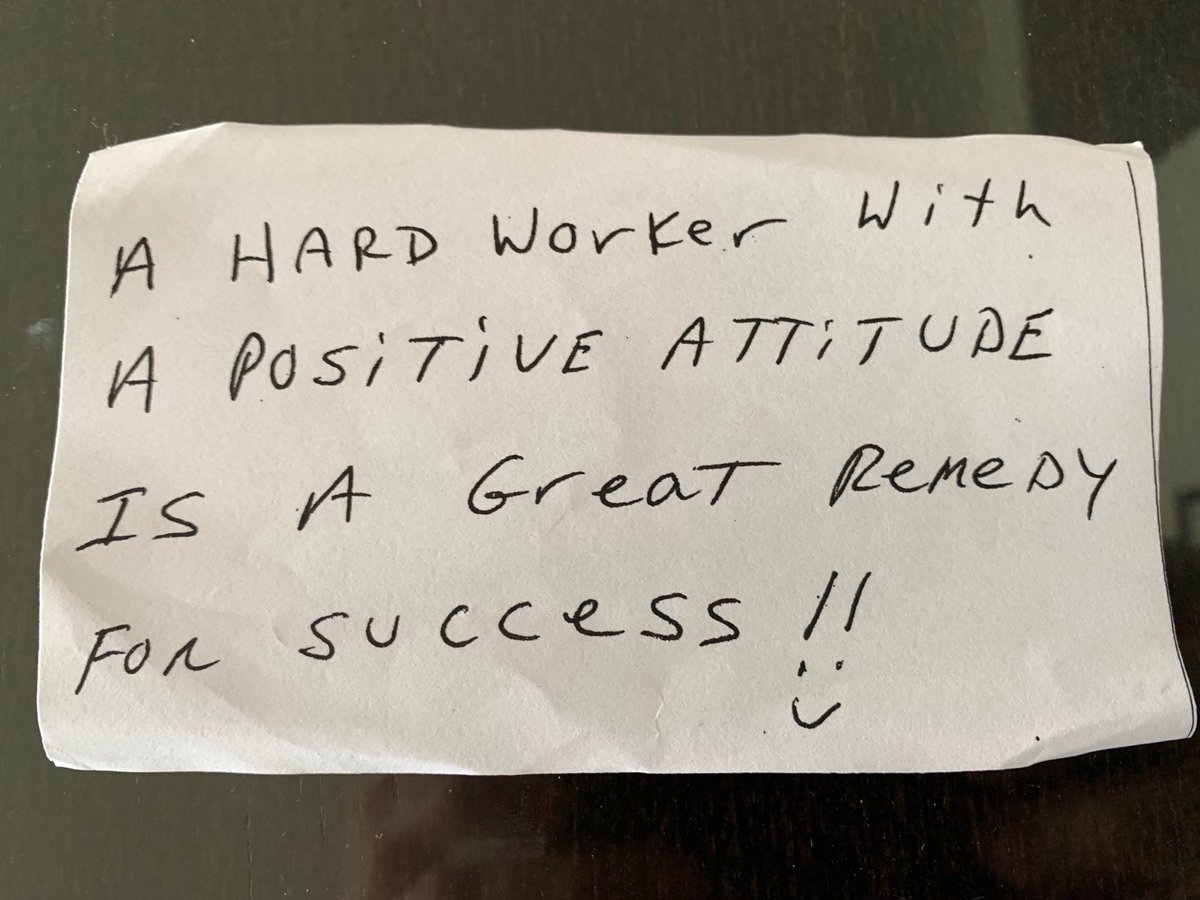 A HARD Worker With
A POSiTiVE ATTiTUDE
IS A Great Remedy
For success !!